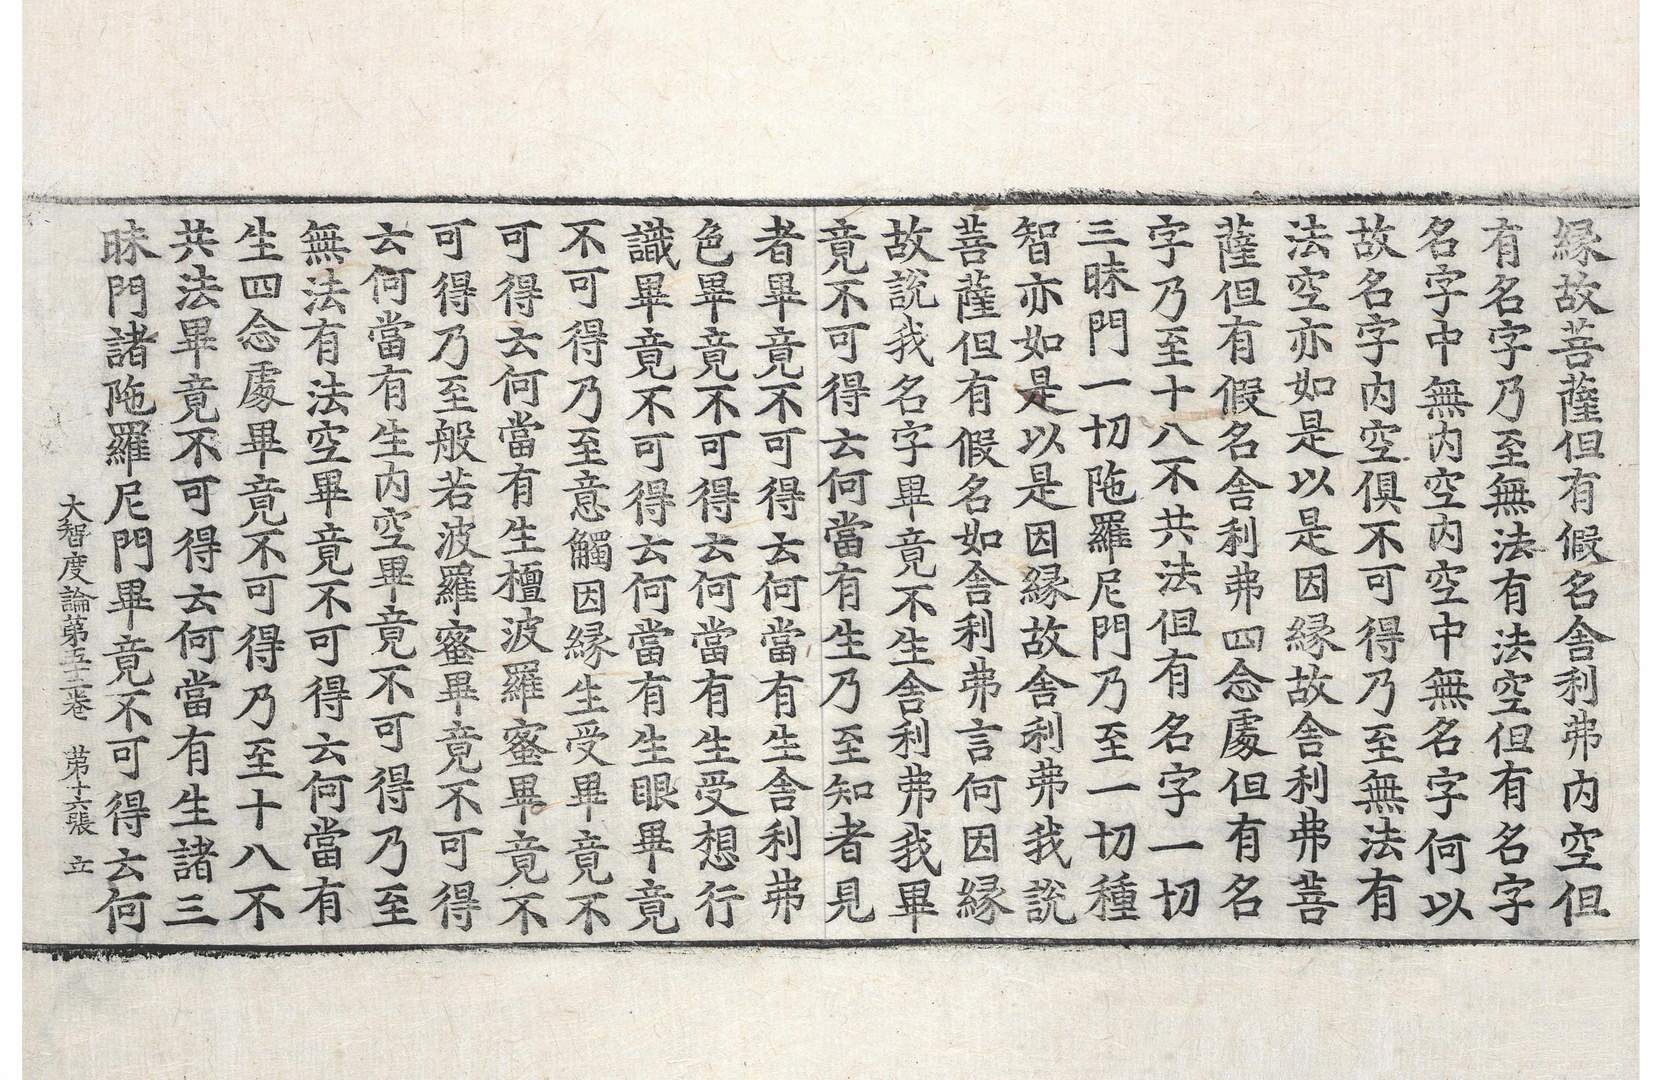 縁故菩薩但有假名舍利弗内空但
有名字乃至無法有法空但有名字
名字中無内空内空中無名字何以
故名字内空俱不可得乃至無法有
法空亦如是以是因縁故舍利弗菩
薩但有假名舍利弗四念處但有名
字乃至十八不共法但有名字一切
三昧門一切陁羅尼門乃至一切種
智亦如是以是因縁故舍利弗我說
菩薩但有假名如舍利弗言何因縁
故說我名字畢竟不生舍利弗我畢
竟不可得云何當有生乃至知者見
者畢竟不可得云何當有生舍利弗
色畢竟不可得云何當有生受想行
識畢竟不可得云何當有生眼畢竟
不可得乃至意觸因縁生受畢竟不
可得云何當有生檀波羅蜜畢竟不
可得乃至般若波羅蜜畢竟不可得
云何當有生内空畢竟不可得乃至
無法有法空畢竟不可得云何當有
生四念處畢竟不可得乃至十八不
共法畢竟不可得云何當有生諸三
昧門諸陁羅尼門畢竟不可得云何
大智度論第五十三卷 第十六張 立